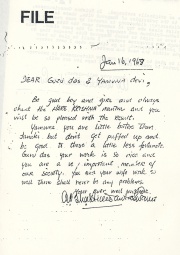 FILE
Jan 16, 1968
DEAR Guru das & Yamuna devi,
Be good boy and girl and always
chant the HARE KRISHNA mantra and you
will be so pleased with the result.
Yamuna you are little better than
janaki but don't get puffed up and
be good to those a little less fortunate.
Guru das your work is so nice and
you are a so important member of
our society. You and your wife work so
well there shall never be any problems.
Your ever well wisher